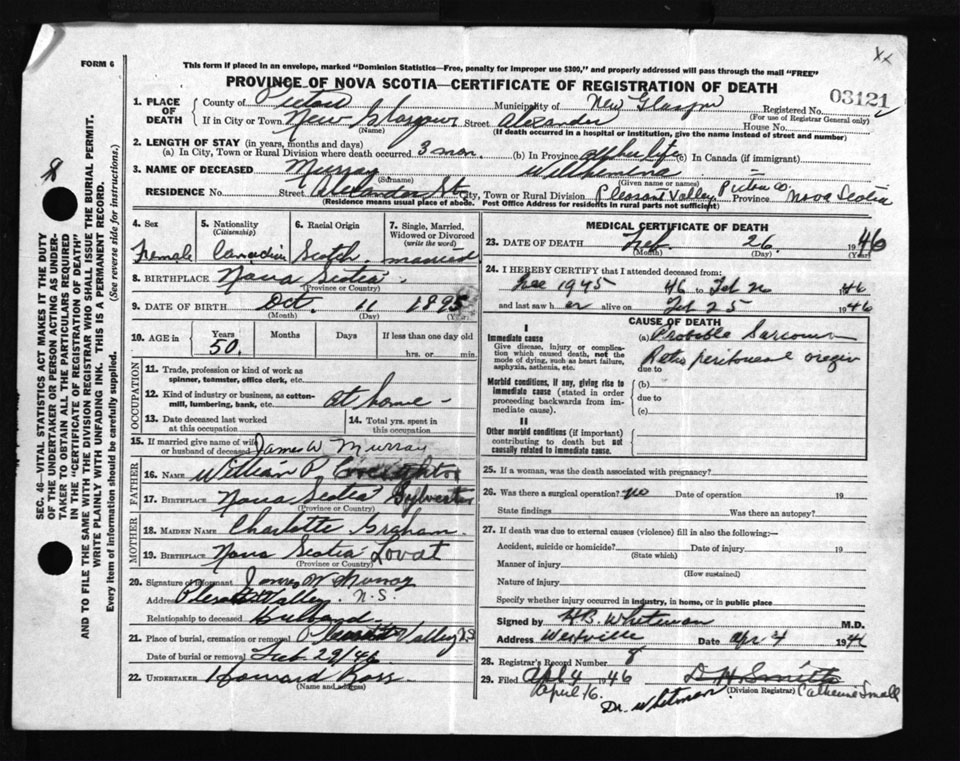 FORM 6
This form if placed in an envelope, marked "Dominion Statistics—Free, penalty for improper use $300," and properly addressed will pass through the mail "FREE"
PROVINCE OF NOVA SCOTIA—CERTIFICATE OF REGISTRATION OF DEATH
SEC. 46—VITAL STATISTICS ACT MAKES IT THE DUTY
OF THE UNDERTAKER OR PERSON ACTING AS UNDER-
TAKER TO OBTAIN ALL THE PARTICULARS REQUIRED
IN THE "CERTIFICATE OF REGISTRATION OF DEATH"
AND TO FILE THE SAME WITH THE DIVISION REGISTRAR WHO SHALL ISSUE THE BURIAL PERMIT.
WRITE PLAINLY WITH UNFADING INK. THIS IS A PERMANENT RECORD.
Every item of information should be carefully supplied. (See reverse side for instructions.)
1. PLACE OF DEATH
County of Pictou Municipality of New Glasgow Registered No. 03121
(For use of Registrar General only)
If in City or Town New Glasgow Street Alexander House No.
(Name) (If death occurred in a hospital or institution, give the name instead of street and number)
2. LENGTH OF STAY (in years, months and days)
(a) In City, Town or Rural Division where death occurred 3 mon. (b) In Province all her life (c) In Canada (if immigrant)
3. NAME OF DECEASED Murray Wilhemina
(Surname) (Given name or names)
RESIDENCE No. Street Alexander St. City, Town or Rural Division Pleasant Valley Pictou Co Province Nova Scotia
(Residence means usual place of abode. Post Office Address for residents in rural parts not sufficient)
4. Sex 5. Nationality (Citizenship) 6. Racial Origin 7. Single, Married, Widowed or Divorced (write the word)
Female Canadian Scotch married
8. BIRTHPLACE Nova Scotia
(Province or Country)
9. DATE OF BIRTH Oct. 11 1895
(Month) (Day) (Year)
10. AGE in Years Months Days If less than one day old
50. hrs. or min.
OCCUPATION
11. Trade, profession or kind of work as spinner, teamster, office clerk, etc.
12. Kind of industry or business, as cotton-mill, lumbering, bank, etc. at home
13. Date deceased last worked at this occupation 14. Total yrs. spent in this occupation
15. If married give name of wife or husband of deceased James W Murray
FATHER
16. NAME William P.
17. BIRTHPLACE Nova Scotia Sylvester
(Province or Country)
MOTHER
18. MAIDEN NAME Charlotte Graham
19. BIRTHPLACE Nova Scotia Lovat
(Province or Country)
20. Signature of Informant James W Murray
Address Pleasant Valley. N.S.
Relationship to deceased Husband
21. Place of burial, cremation or removal Pleasant Valley NS
Date of burial or removal Feb. 29/46
22. UNDERTAKER Howard Ross
(Name and address)
MEDICAL CERTIFICATE OF DEATH
23. DATE OF DEATH Feb. 26 1946
(Month) (Day) (Year)
24. I HEREBY CERTIFY that I attended deceased from:
Dec 1945 to Feb 26 1946
and last saw her alive on Feb 25 1946
CAUSE OF DEATH
I
Immediate cause
Give disease, injury or complication which caused death, not the mode of dying, such as heart failure, asphyxia, asthenia, etc.
(a) Probable Sarcoma
Retro peritoneal origin
due to
Morbid conditions, if any, giving rise to immediate cause (stated in order proceeding backwards from immediate cause).
(b)
due to
(c)
II
Other morbid conditions (if important) contributing to death but not causally related to immediate cause.
25. If a woman, was the death associated with pregnancy?
26. Was there a surgical operation? no Date of operation 19
State findings Was there an autopsy?
27. If death was due to external causes (violence) fill in also the following:—
Accident, suicide or homicide? Date of injury 19
(State which)
Manner of injury
(How sustained)
Nature of injury
Specify whether injury occurred in industry, in home, or in public place
Signed by H.B. Whitman M.D.
Address Westville Date Apr 4 1946
28. Registrar's Record Number 8
29. Filed Apl 4 1946 D H Smith
(Division Registrar)
April 16. Dr. Whitman Catherine Small